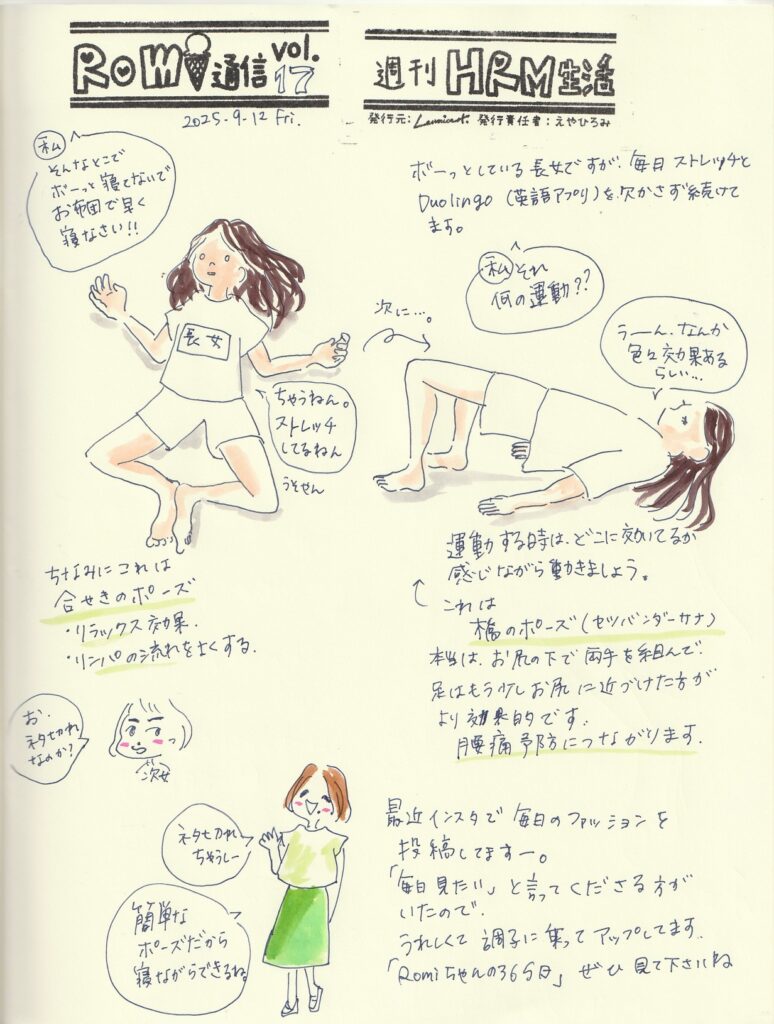 Romi通信 vol.17
2025-9-12 Fri.
週刊 HRM生活
発行元: Lamicart. 発行責任者:えやひろみ
私
そんなとこで
ボーっと寝てないで
お布団で早く
寝なさい!!
長女
ちゃうねん。
ストレッチ
してるねん
うそやん
ちなみにこれは
合せきのポーズ
・リラックス効果.
・リンパの流れをよくする.
ボーっとしている長女ですが、毎日ストレッチと
Duolingo (英語アプリ)を欠かさず続けて
ます。
次に…。
私 それ
何の運動??
うーん、なんか
色々効果ある
らしい…
運動する時は、どこに効いてるか
感じながら動きましょう。
これは
橋のポーズ(セツバンダーサナ)
本当は、お尻の下で両手を組んで、
足はもう少しお尻に近づけた方が
より効果的です.
腰痛予防につながります.
お、
ネタ切れ
なのか?
次女
ネタ切れ
ちゃうしー
簡単な
ポーズだから
寝ながらできるね
最近インスタで毎日のファッションを
投稿してますー。
「毎日見たい」と言ってくださる方が
いたので、
うれしくて調子に乗ってアップしてます.
「Romiちゃんの365日」ぜひ見て下さいね